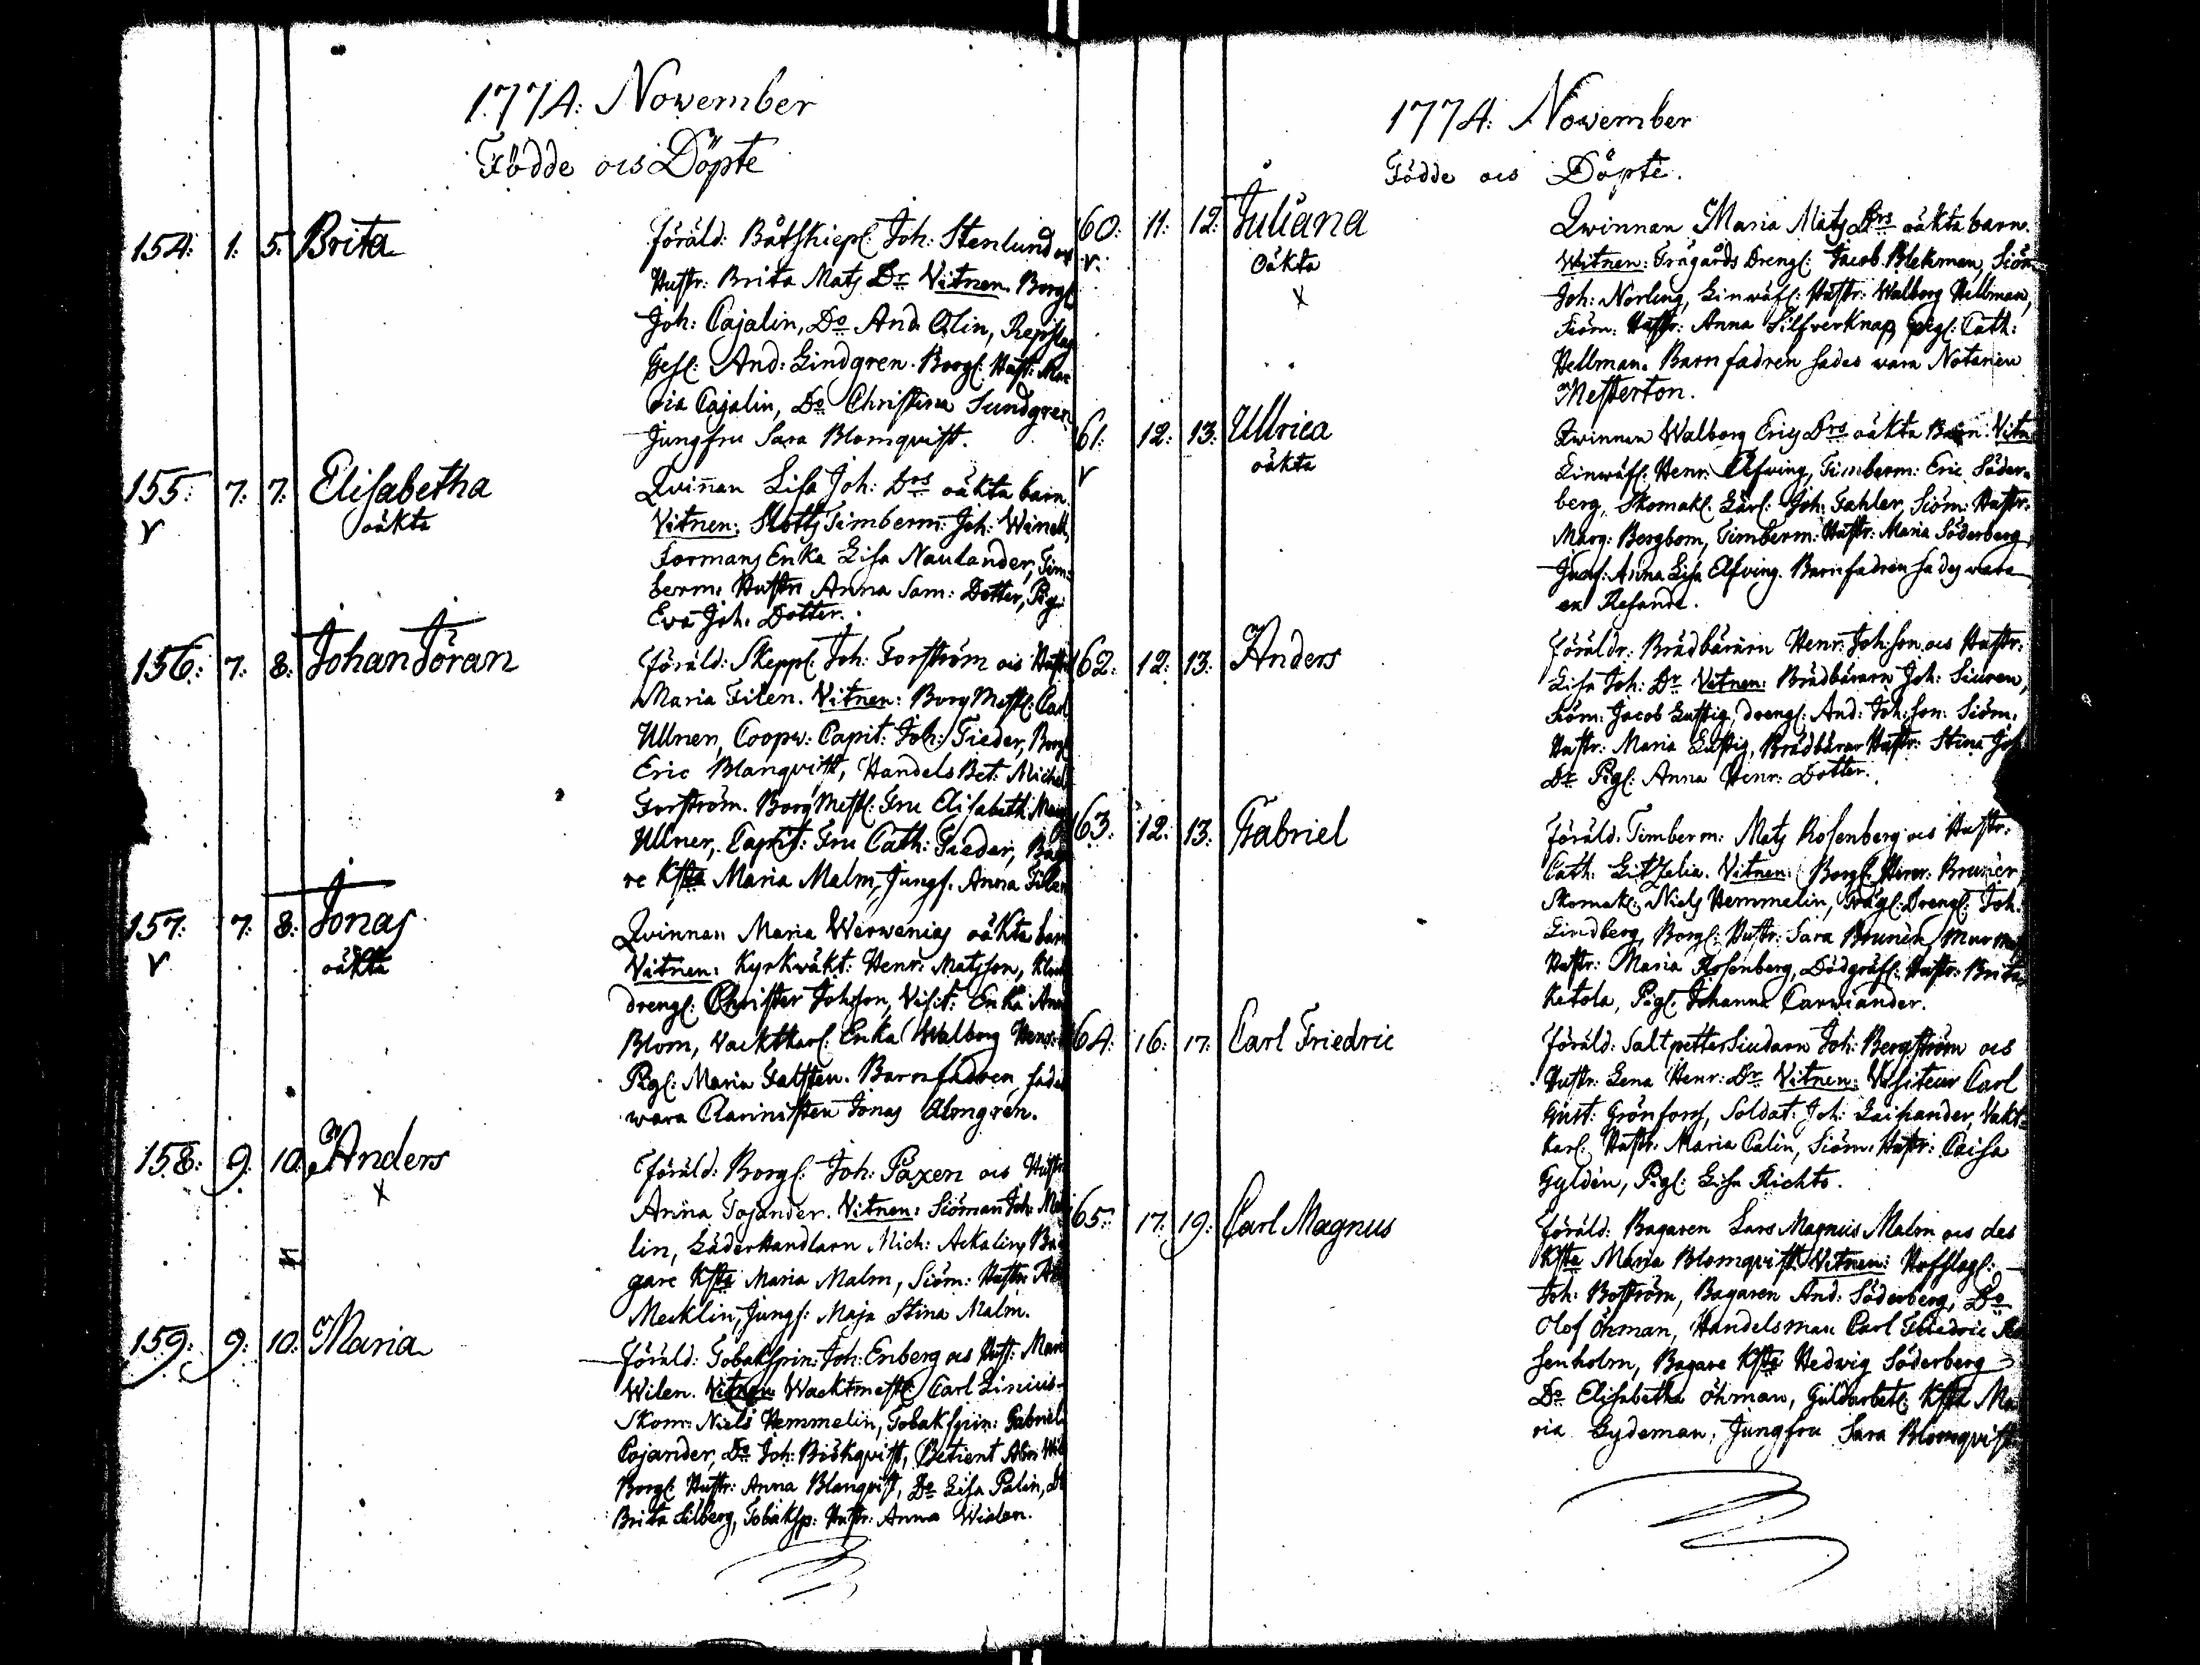 1774: November
Födde ocs Döpte
154: 1: 5: Brita
föräld: Båtskiepl: Joh: Stenlund ocs
Hustr: Brita Mats Dr Vitnen. Borgl:
Joh: Cajalin, Do And: Olin, Repslag
Gesl: And: Lindgren. Borgl: Hust: Ma
ria Cajalin, Do Christina Sundgren
Jungfru Sara Blomqvist.
155: 7: 7: Elisabetha
oäkta
v
Qvinnan Lisa Joh: Drs oäkta barn.
Vitnen: Slotts Timberm: Joh: Winell,
Formans Enka Lisa Naulander, Tim:
berm: Hustr: Anna Sam: Dotter, Pig:
Eva Joh: Dotter.
156: 7: 8: Johan Jöran
föräld: Skeppl: Joh: Forström ocs Hustr
Maria Filen. Vitnen: Borg Mest: Carl
Ullner, Coopw: Capit: Joh: Fieder, Borgl
Eric Blanqvist, Handels Bet: Michel
Forström. Borg Mest: Fru Elisabeth Marg
Ullner, Capit: Fru Cath: Fieder, Baga
re Ksta Maria Malm, Jungf. Anna Filen
157: 7: 8: Jonas
oäkta
v
Qvinnan Maria Werwenias oäkta barn
Vitnen: Kyrkwäkt: Henr: Matsson, Klock
drengl: Christer Johsson, Visit: Enka Anna
Blom, Vacktkarl: Enka Walborg Henr:
Pigl: Maria Faltsten. Barnfadren sades
wara Clarinisten Jonas Almgren.
158: 9: 10: Anders
x
föräld: Borgl: Joh: Paxen ocs Hustr
Anna Tojander. Vitnen: Siöman Joh: Meck
lin, Läderhandlarn Mich: Ackalin, Ba
gare Ksta Maria Malm, Siöm: Hustr:
Mecklin, Jungf: Maja Stina Malm.
159: 9: 10: Maria
föräld: Tobakspin: Joh: Enberg ocs Hust: Maria
Wilen. Vitnen: Wacktmest: Carl Linius
Skom: Niels Hemmelin, Tobakspin: Gabriel
Cojander, Do Joh: Biökqvist, Betient Abr: Wil
Borgl: Hustr: Anna Blanqvist, Do Lisa Palin, Do
Brita Silberg, Tobaksp: Hustr: Anna Wialen.
1774: November
Födde ocs Döpte.
160: 11: 12: Juliana
v. oäkta
x
Qwinnan Maria Mats Drs oäkta barn.
Witnen: Trägårds Drengl: Jacob Blekman, Siöm
Joh: Norling, Linwäfl: Hustr: Walborg Hellman,
Siöm: Hustr: Anna Silfverknap, Pigl: Cath:
Hellman. Barnfadren sades wara Notarien
Mesterton.
161: 12: 13: Ullrica
v oäkta
Qwinnan Walborg Erics Drs oäkta Barn. Vitn
Linwäfl: Henr: Elfving, Timberm: Eric Söder=
berg, Skomakl: Lärl: Joh: Fahler, Siöm: Hustr:
Marg: Bergbom, Timberm: Hustr: Maria Söderberg,
Jungf: Anna Lisa Elfving. Barnfadren sades wara
en Resande.
162: 12: 13: Anders
föräldr: Brädbärarn Henr: Joh:son ocs Hustr:
Lisa Joh: Dr Vitnen: Brädbärarn Joh: Siuren,
Siöm: Jacob Lustig, drengl: And: Joh:son: Siöm:
Hustr: Maria Lustig, Brädbärar Hustr: Stina Joh
Dr Pigl: Anna Henr: Dotter.
163: 12: 13: Gabriel
föräld: Timberm: Mats Rosenberg ocs Hustr:
Cath: Litzelia. Vitnen: Borgl: Henr: Brunèr,
Skomakl: Niels Hemmelin, Trägl: Drengl: Joh:
Lindberg, Borgl: Hustr: Sara Brunèr, Mur Mäs
Hustr: Maria Rosenberg, Dödgräfl: Hustr: Brita
Ketola, Pigl: Johanna Carwiander.
164: 16: 17: Carl Friedric
föräld: Saltpettersiudarn Joh: Bergström ocs
Hustr: Lena Henr: Dr Vitnen: Visiteur Carl
Gust: Grönfors, Soldat: Joh: Laihander, Vakt=
karl: Hustr: Maria Calin, Siöm: Hustr: Caisa
Gyldén, Pigl: Lisa Richts.
165: 17: 19: Carl Magnus
föräld: Bagaren Lars Magnus Malm ocs des
Ksta Maria Blomqvist. Vitnen: Hofslagl:
Joh: Boström, Bagaren And: Söderberg, Do
Olof Öhman, Handelsman Carl Friedric Ro
senholm, Bagare Ksta Hedwig Söderberg
Do Elisabetha Öhman, Guldarbetl: Ksta Ma
ria Gydeman, Jungfru Sara Blomqvist